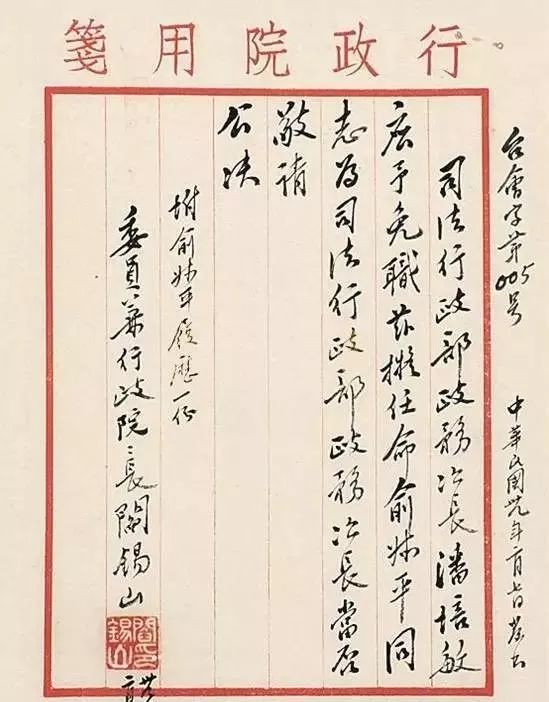 行政院用箋
台會字第005号
中華民國卅九年
司法行政部政務次長潘培敏
应予免職茲擬任命俞叔平同
志為司法行政部政務次長當否
敬請
公决
附俞叔平履歷一份
委員兼行政院〻長閻錫山
閻錫山印